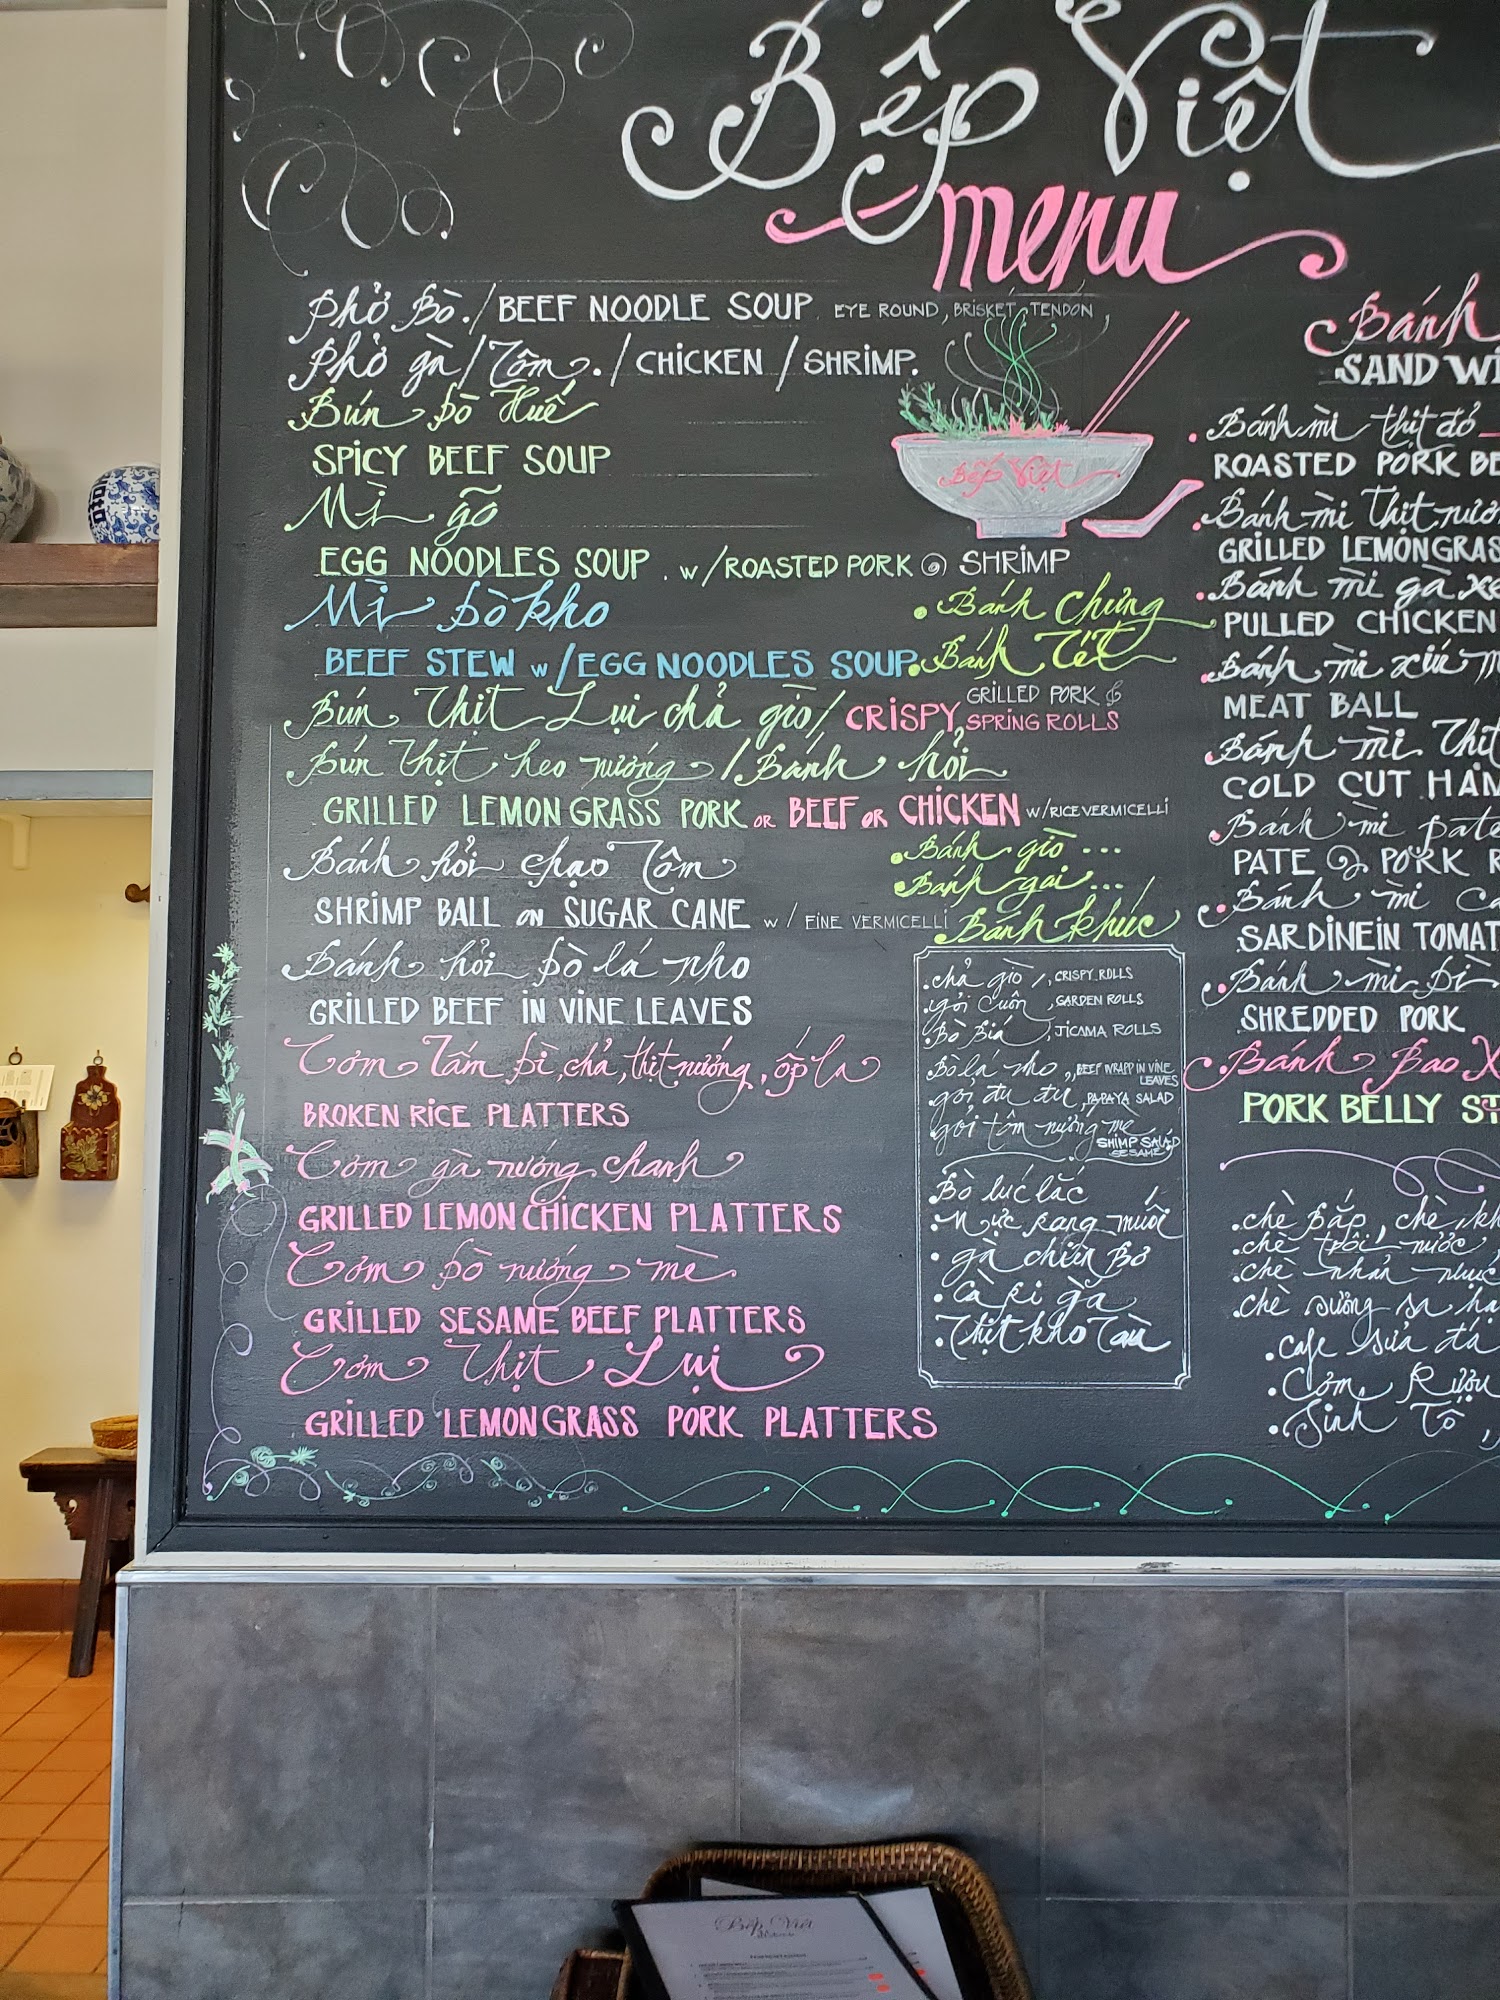 Bếp Việt
menu
Phở Bò. / BEEF NOODLE SOUP. EYE ROUND, BRISKET, TENDON,
Phở gà / Tôm. / CHICKEN / SHRIMP.
Bún bò Huế
SPICY BEEF SOUP
Mì gõ
EGG NOODLES SOUP. w/ROASTED PORK @ SHRIMP
Mì bò kho
BEEF STEW w/EGG NOODLES SOUP
Bún Thịt Lụi chả giò/ CRISPY GRILLED PORK &
SPRING ROLLS
Bún thịt heo nướng / Bánh hỏi
GRILLED LEMONGRASS PORK OR BEEF OR CHICKEN w/RICE VERMICELLI
Bánh hỏi chạo Tôm
SHRIMP BALL on SUGAR CANE w/ FINE VERMICELLI
Bánh hỏi bò lá nho
GRILLED BEEF IN VINE LEAVES
Cơm Tấm bì, chả, thịt nướng, ốp la
BROKEN RICE PLATTERS
Cơm gà nướng chanh
GRILLED LEMON CHICKEN PLATTERS
Cơm bò nướng mè
GRILLED SESAME BEEF PLATTERS
Cơm Thịt Lụi
GRILLED LEMONGRASS PORK PLATTERS
Bếp Việt
• Bánh chưng
• Bánh Tét
• Bánh giò ...
• Bánh gai ...
Bánh khúc
• chả giò, CRISPY ROLLS
gỏi cuốn, GARDEN ROLLS
Bò Bía, JICAMA ROLLS
Bò lá nho, BEEF WRAPP IN VINE
LEAVES
gỏi đu đủ, PAPAYA SALAD
gỏi tôm nướng mè
SHIMP SALAD
SESAME
Bò lúc lắc
• Mực Rang muối
• gà chiên Bơ
• Cà Ri gà
• Thịt kho Tàu
Bánh
SANDWI
• Bánh mì thịt đỏ
ROASTED PORK BE
• Bánh mì Thịt nướ
GRILLED LEMONGRAS
• Bánh mì gà xé
PULLED CHICKEN
• Bánh mì xíu m
MEAT BALL
• Bánh mì Thịt
COLD CUT HAM
• Bánh mì pate
PATE & PORK R
• Bánh mì ca
SARDINE IN TOMAT
• Bánh mì bì
SHREDDED PORK
Bánh Bao X
PORK BELLY ST
• chè Bắp, chè kh
• chè trôi nước,
• chè nhãn nhục
chè sương sa hạ
• Cafe sữa đá
• Cơm Rượu
• Sinh Tố,
Bếp Việt